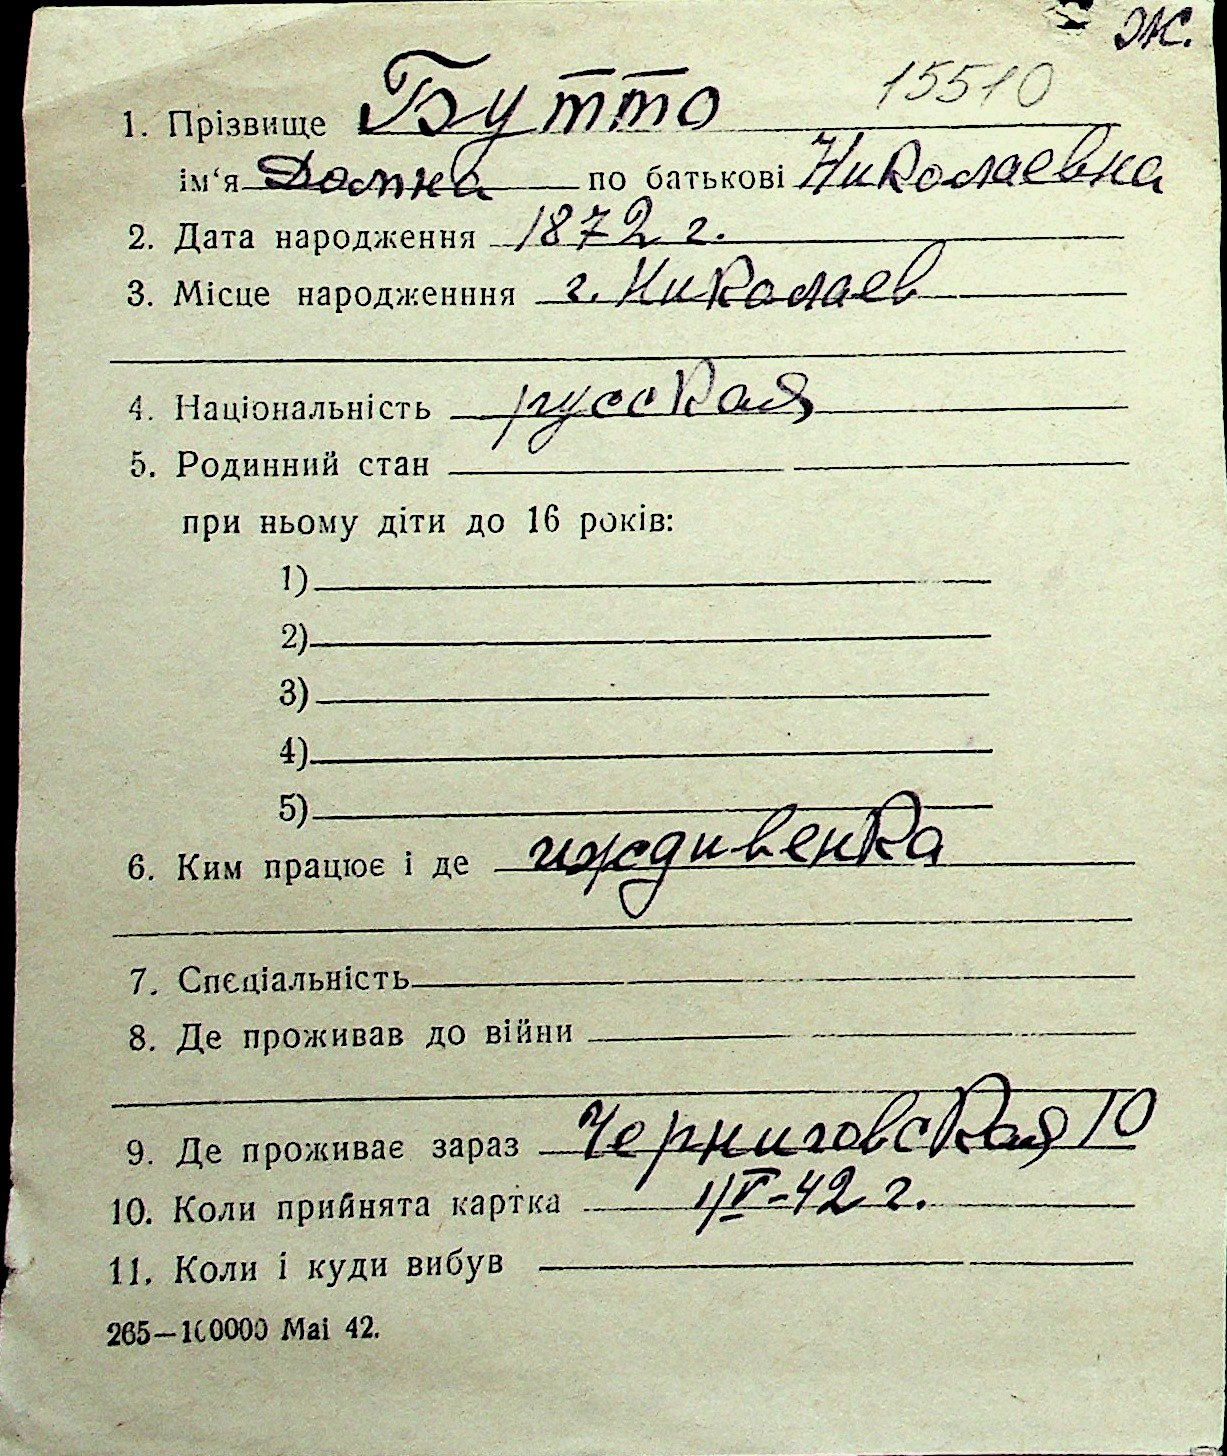 Ж.
15510
1. Прізвище Бутто
ім‘я Домна по батькові Николаевна
2. Дата народження 1872 г.
3. Місце народженння г. Николаев
4. Національність русская
5. Родинний стан
при ньому діти до 16 років:
1)
2)
3)
4)
5)
6. Ким працює і де иждивенка
7. Спеціальність
8. Де проживав до війни
9. Де проживає зараз Черниговская 10
10. Коли прийнята картка 1/V-42 г.
11. Коли і куди вибув
265—100000 Mai 42.